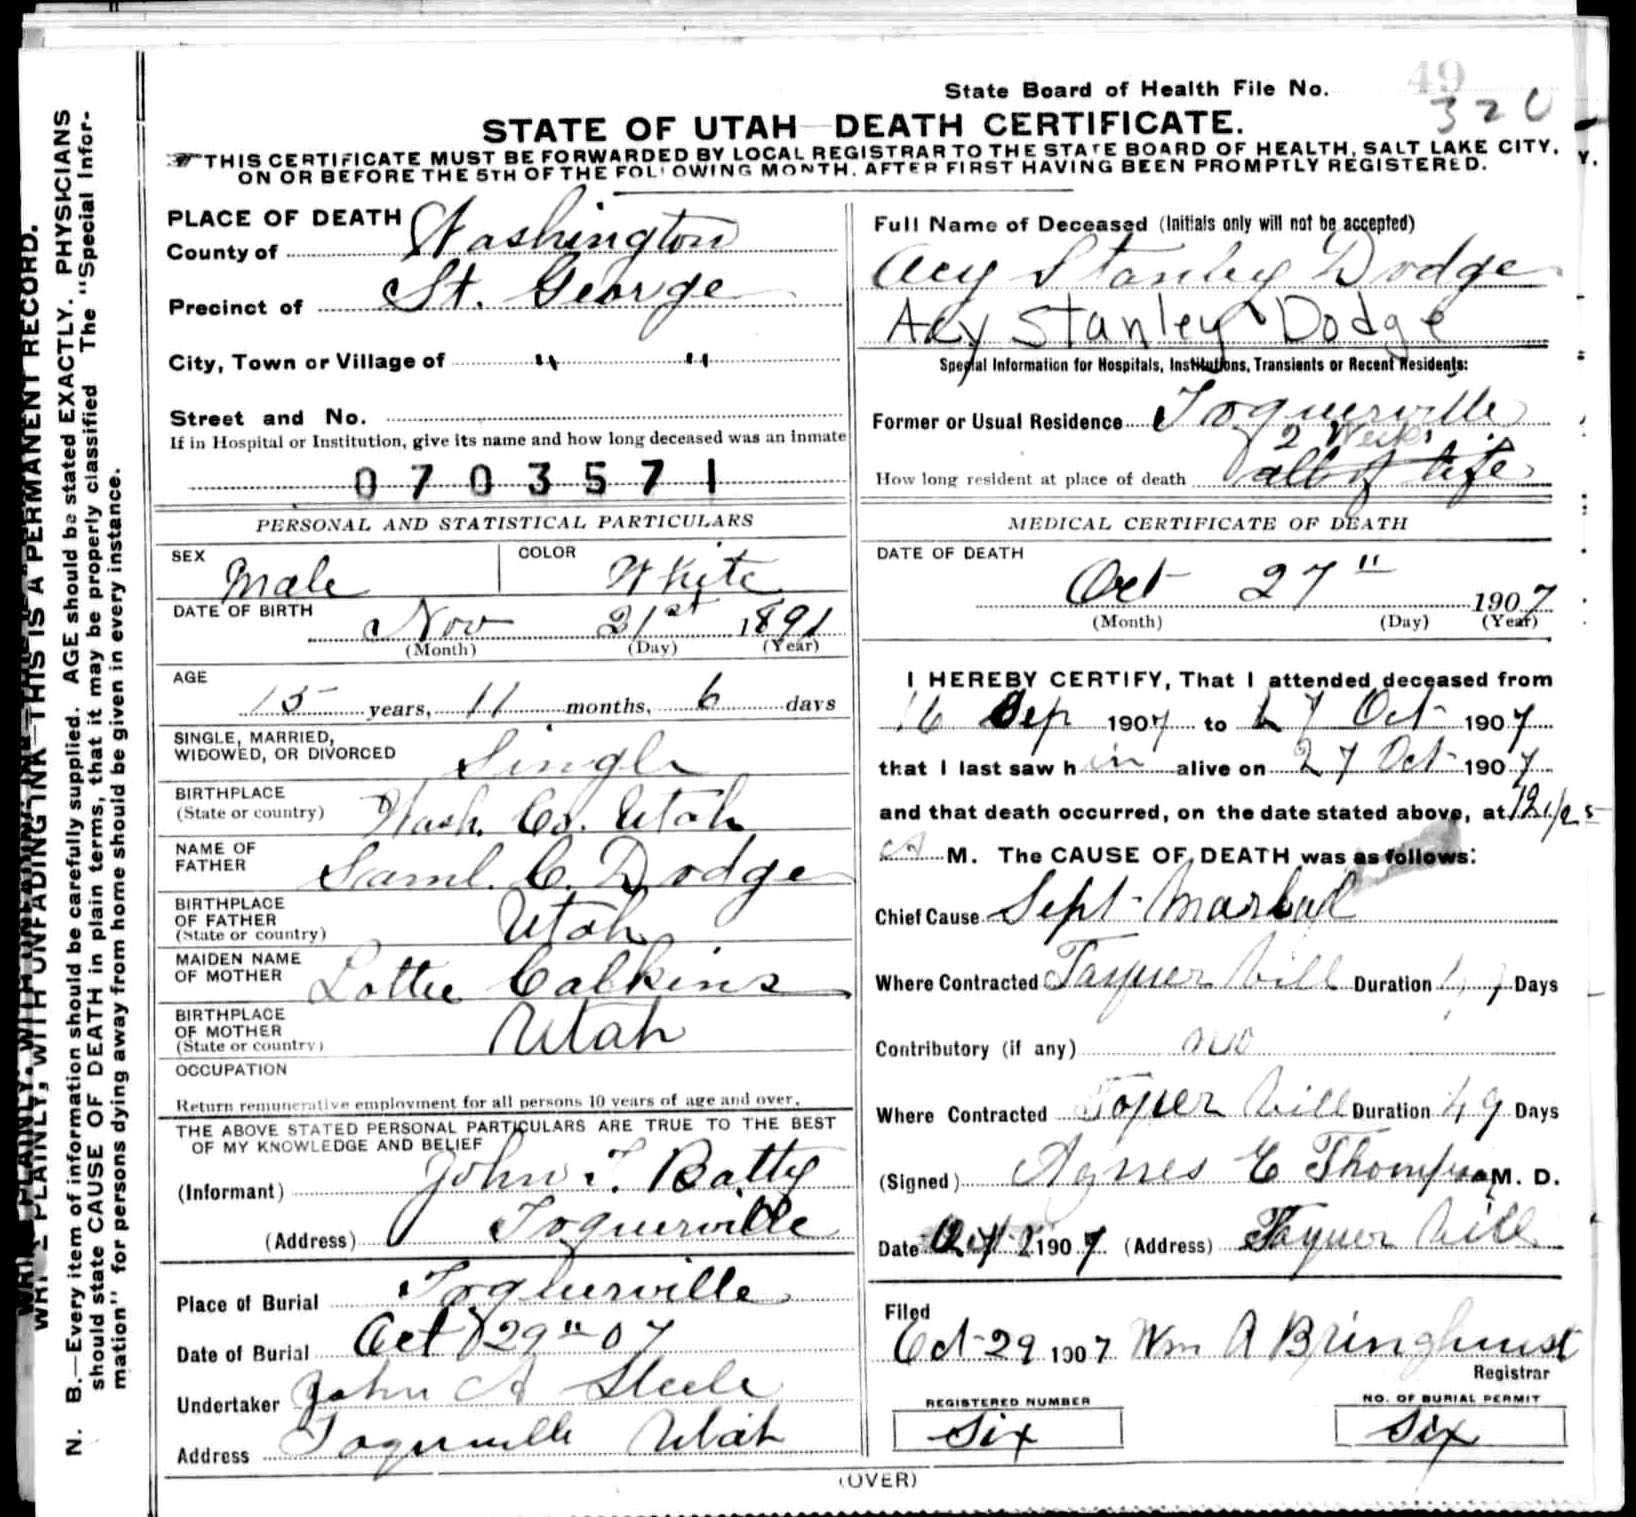 49
State Board of Health File No. 320
STATE OF UTAH—DEATH CERTIFICATE.
THIS CERTIFICATE MUST BE FORWARDED BY LOCAL REGISTRAR TO THE STATE BOARD OF HEALTH, SALT LAKE CITY,
ON OR BEFORE THE 5TH OF THE FOLLOWING MONTH, AFTER FIRST HAVING BEEN PROMPTLY REGISTERED.
PLACE OF DEATH
County of Washington
Precinct of St. George
City, Town or Village of " "
Street and No.
If in Hospital or Institution, give its name and how long deceased was an inmate
0703571
PERSONAL AND STATISTICAL PARTICULARS
SEX Male
COLOR White
DATE OF BIRTH Nov 21st 1891
(Month) (Day) (Year)
AGE
15 years, 11 months, 6 days
SINGLE, MARRIED,
WIDOWED, OR DIVORCED Single
BIRTHPLACE
(State or country) Wash. Co. Utah
NAME OF
FATHER Saml. C. Dodge
BIRTHPLACE
OF FATHER
(State or country) Utah
MAIDEN NAME
OF MOTHER Lottie Calkins
BIRTHPLACE
OF MOTHER
(State or country) Utah
OCCUPATION
Return remunerative employment for all persons 10 years of age and over.
THE ABOVE STATED PERSONAL PARTICULARS ARE TRUE TO THE BEST
OF MY KNOWLEDGE AND BELIEF
(Informant) John T. Batty
(Address) Toquerville
Place of Burial Toquerville
Date of Burial Oct 29" 07
Undertaker John A Steele
Address Toquerville Utah
Full Name of Deceased (Initials only will not be accepted)
Acy Stanley Dodge
Acy Stanley Dodge
Special Information for Hospitals, Institutions, Transients or Recent Residents:
Former or Usual Residence Toquerville
2 Weeks
How long resident at place of death all of life
MEDICAL CERTIFICATE OF DEATH
DATE OF DEATH
Oct 27" 1907
(Month) (Day) (Year)
I HEREBY CERTIFY, That I attended deceased from
16 Sep 1907 to 27 Oct 1907
that I last saw him alive on 27 Oct 1907
and that death occurred, on the date stated above, at
A M. The CAUSE OF DEATH was as follows:
Chief Cause Sept
Where Contracted Duration Days
Contributory (if any) no
Where Contracted Duration 49 Days
(Signed) Agnes E Thompson M. D.
Date 1907 (Address)
Filed
Oct 29 1907 Wm A Bringhurst
Registrar
REGISTERED NUMBER
Six
NO. OF BURIAL PERMIT
Six
(OVER)
WRITE PLAINLY, WITH UNFADING INK—THIS IS A PERMANENT RECORD.
N. B.—Every item of information should be carefully supplied. AGE should be stated EXACTLY. PHYSICIANS
should state CAUSE OF DEATH in plain terms, that it may be properly classified The "Special Infor-
mation" for persons dying away from home should be given in every instance.